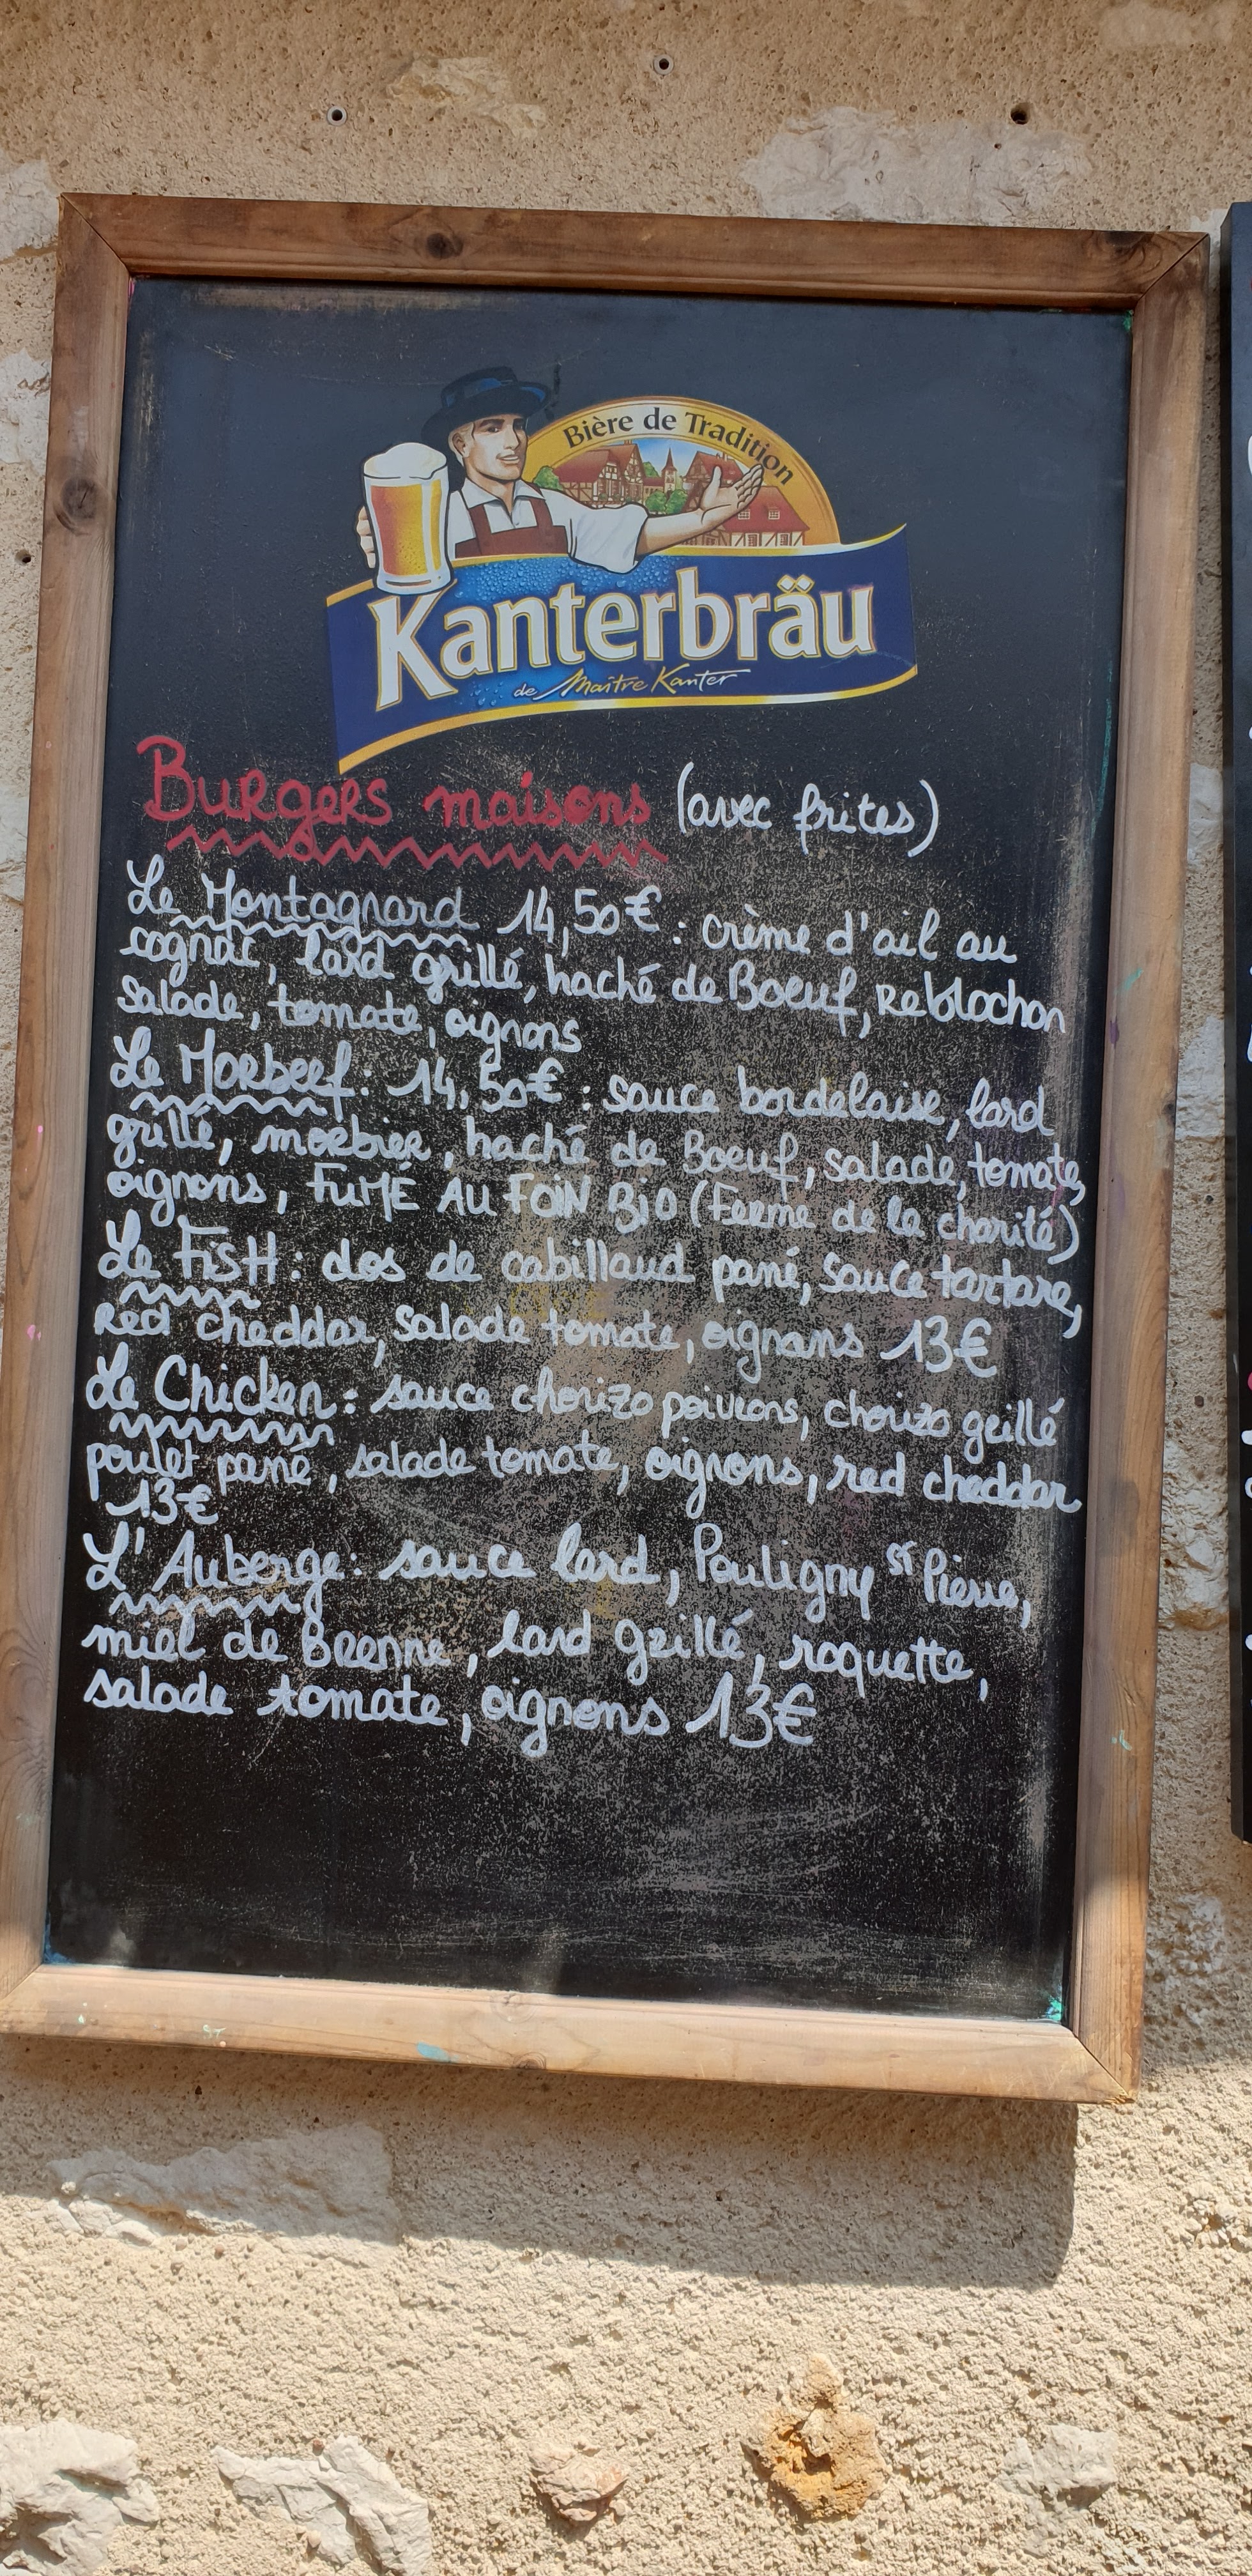 Bière de Tradition
Kanterbräu
de Maître Kanter
Burgers maisons (avec frites)
Le Montagnard 14,50€ : crème d'ail au
cognac, lard grillé, haché de Boeuf, Reblochon
salade, tomate, oignons
Le Morbeef : 14,50€ : sauce bordelaise, lard
grillé, morbier, haché de Boeuf, salade, tomate,
oignons, FUMÉ AU FOIN BIO (Ferme de la charité)
Le FISH : dos de cabillaud pané, sauce tartare,
Red cheddar, salade tomate, oignons 13€
Le Chicken : sauce chorizo poivrons, chorizo grillé
poulet pané, salade tomate, oignons, red cheddar
13€
L'Auberge : sauce lard, Pouligny St Pierre,
miel de Brenne, lard grillé, roquette,
salade tomate, oignons 13€